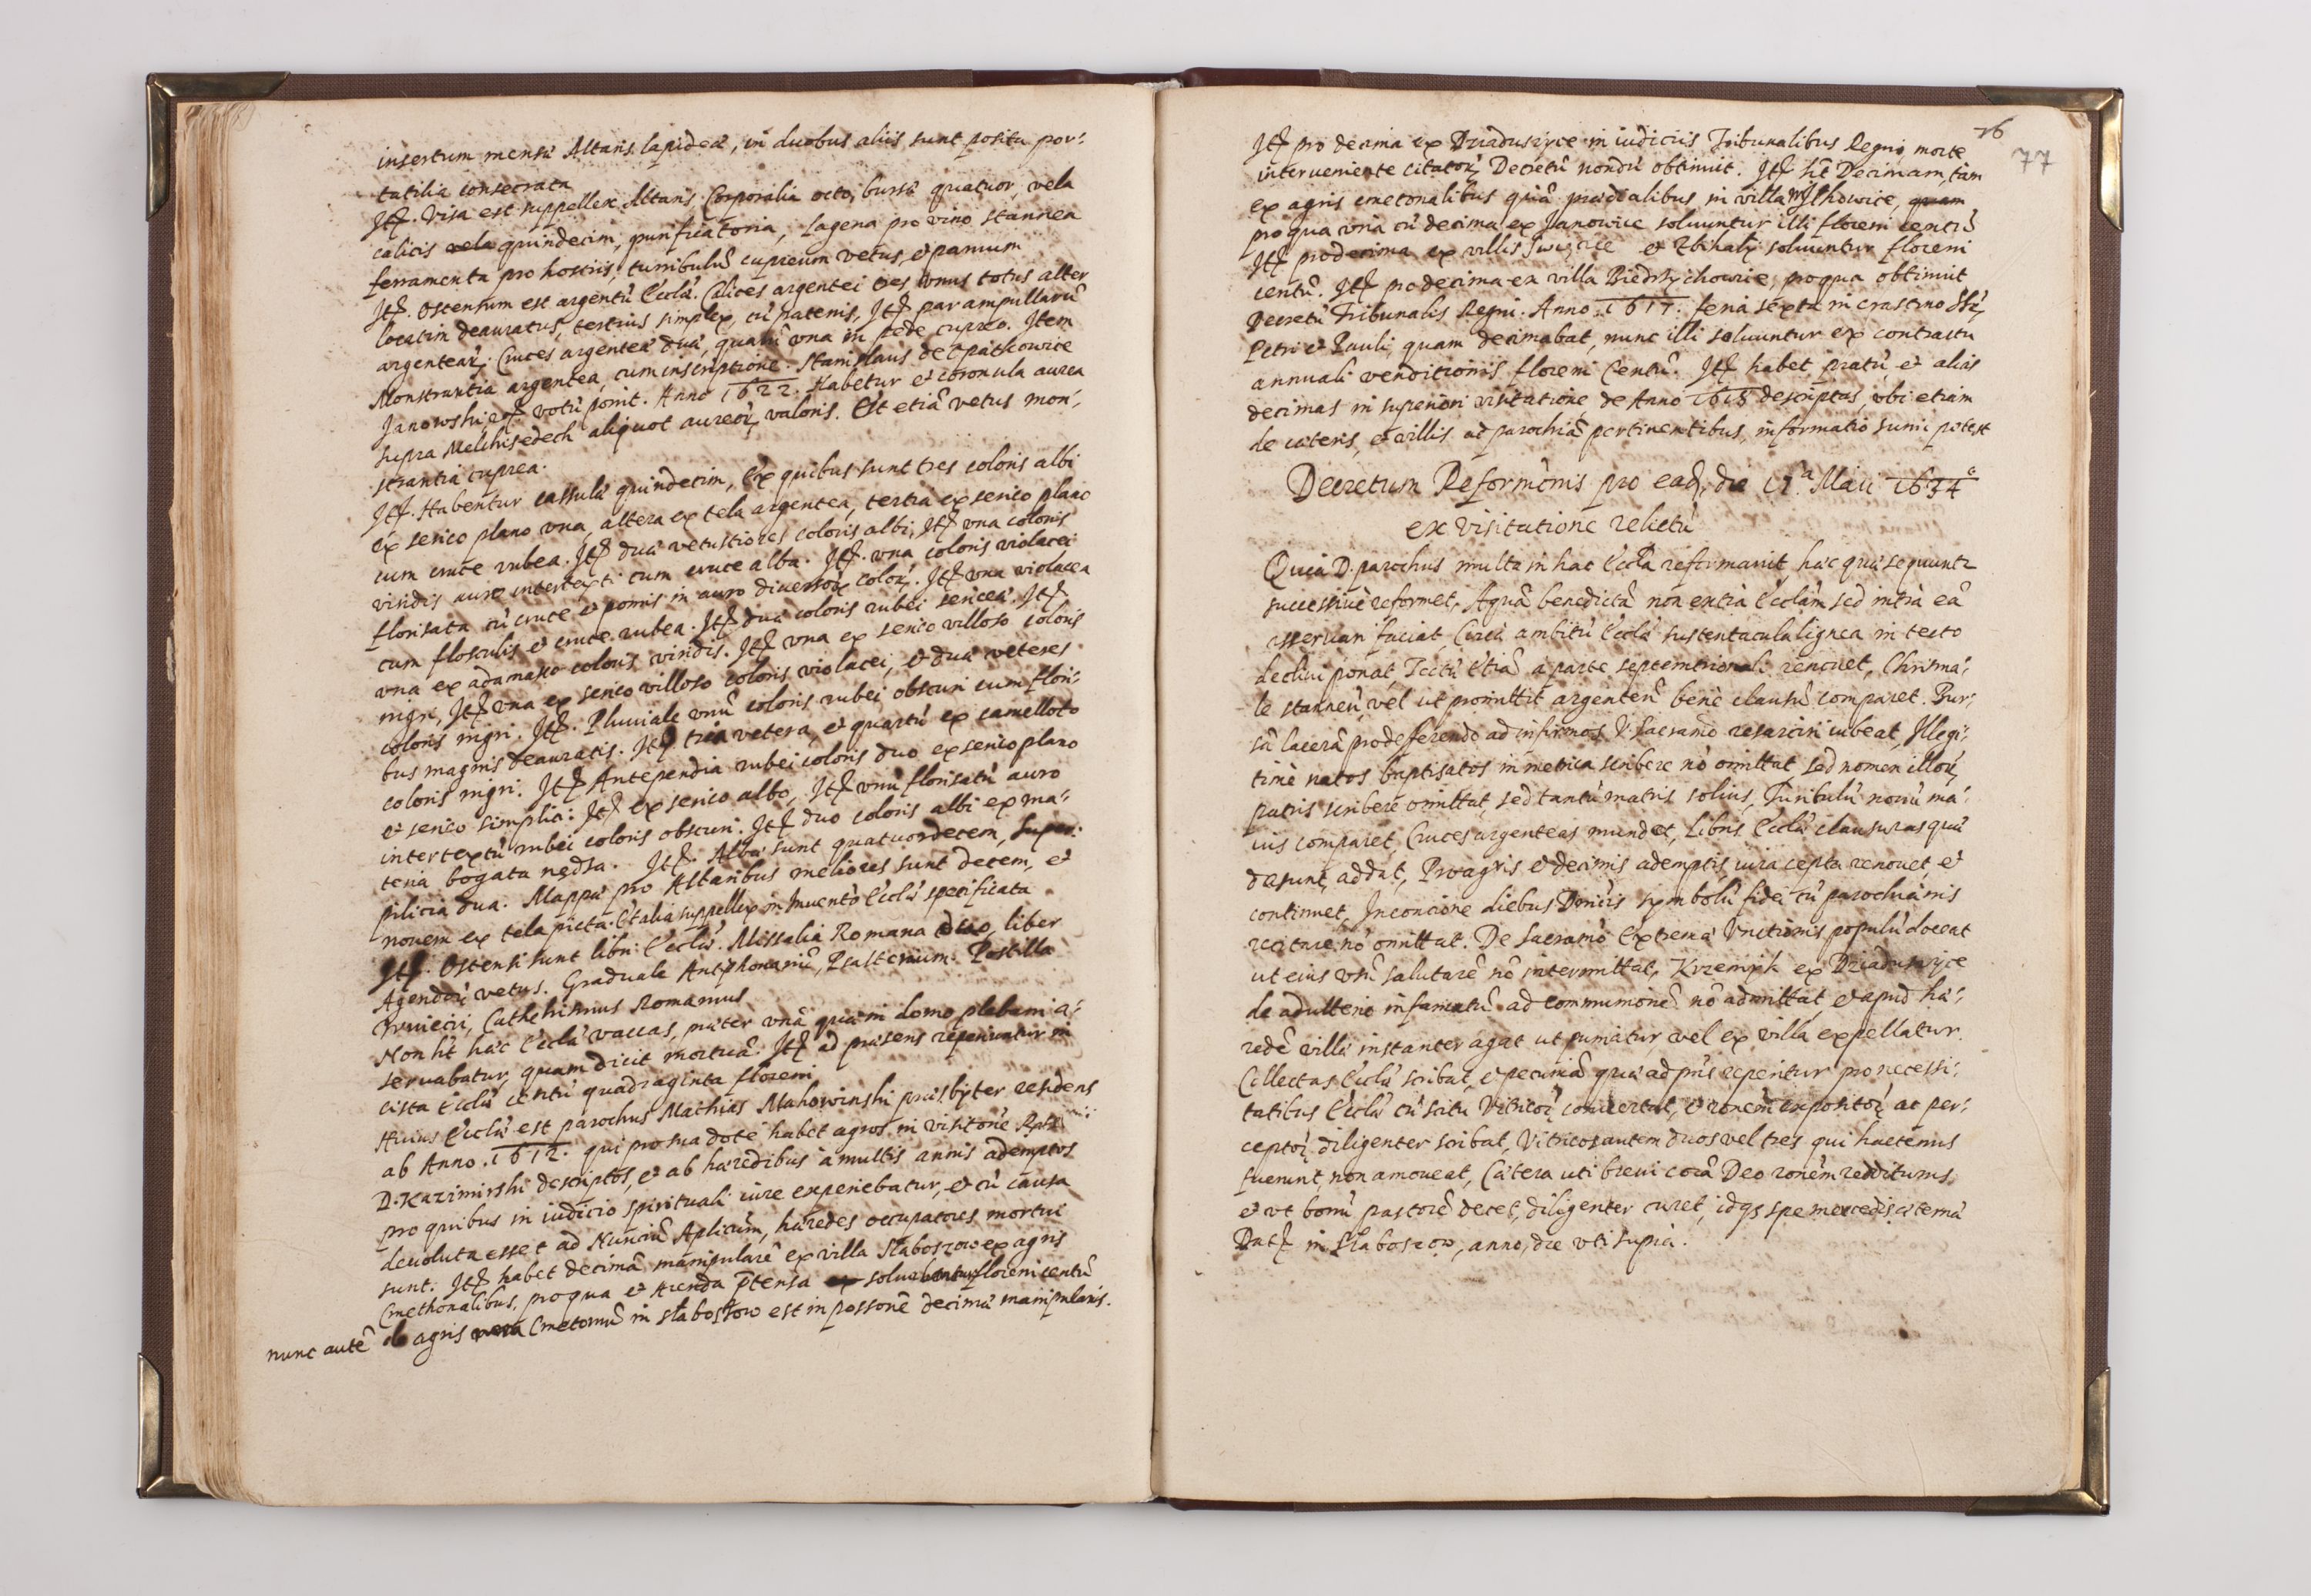 insertum mensæ Altaris lapideæ, in duobus aliis sunt posita por=
tatilia consecrata
Itẽ. Visa est suppellex Altaris. Corporalia octo, bursæ quatuor, vela
calicis vela quindecim, purificatoria, lagena pro vino stannea
ferramenta pro hostiis, turribulũ cupreum vetus, et parvum
Itẽ. Ostensum est argentũ Eccłæ. Calices argentei tres vnus totus alter
locatim deauratus, tertius simplex, cũ patenis, Itẽ par ampullarũ
argentearũ. Cruces argenteæ duæ, quarũ vna in pede cupreo. Item
Monstrantia argentea, cum inscriptione. Stanislaus de Czpatkowice
Janowski ex votũ ponit. Anno 1622. Habetur et coronula aurea
supra Melchisedech aliquot aureorũ valoris. Est etiã vetus mon=
strantia cuprea.
Itẽ. Habentur cassulæ quindecim, Ex quibus sunt tres coloris albi
ex serico plano vna, altera ex tela argentea, tertia ex serico plano
cum cruce rubea. Itẽ duæ vetustiores coloris albi, Itẽ vna coloris
viridis auro intertexti cum cruce alba. Itẽ. vna coloris violacei
florisata cũ cruce et pomis in auro diversorũ colorũ. Itẽ vna violacea
cum flosculis et cruce rubea. Itẽ duæ coloris rubei sericeæ. Itẽ
vna ex adamasco coloris viridis. Itẽ vna ex serico villoso coloris
nigri, Itẽ vna ex serico villoso coloris violacei, et duæ veteres
coloris nigri. Itẽ. Pluviale vnũ coloris rubei obscuri cum flori=
bus magnis deauratis. Itẽ tria vetera, et quartũ ex camelloto
coloris nigri. Itẽ Antependia rubei coloris duo ex serico plano
et serico simplici. Itẽ ex serico albo, Itẽ vnũ florisatũ auro
intertextũ rubei coloris obscuri. Itẽ duo coloris albi ex ma=
teria bogata nędza. Itẽ. Albæ sunt quatuordecem, super=
pilicia dua. Mappæ pro Altaribus meliores sunt decem, et
novem ex tela picta. Et alia suppellex in Inventõ Eccłæ specificata
Itẽ. Ostensi sunt libri Eccłæ. Missalia Romana duo, liber
Agendorũ vetus. Graduale Antiphonariũ, Psalterium. Postilla
Wuiecii, Cathehismus Romanus
Non hẽt hæc Eccła vaccas, præter vnã quæ in domo plebani a=
servabatur, quam dicit mortuã. Itẽ ad præsens reperiuntur in
cista Eccłæ centũ quadraginta floreni
Huius Eccłæ est parochus Mathias Makowinski præsbyter residens
ab Anno. 1612. qui pro sua dote habet agros in visitõne
D. Kazimirski descriptos, et ab hæredibus a multis annis ademptos
pro quibus in iudicio spirituali iure experiebatur, et cũ causa
devoluta esset ad Nunciũ Aplicũm, hæredes occupatores mortui
sunt. Itẽ habet decimã manipularẽ ex villa Słaboszow ex agris
Cmethonalibus, pro qua et arenda p̃tensa ex solvebantur floreni centũ
nunc autẽ de agris Cmetonũ in Słaboszow est in possonẽ decimæ manipularis.
76
77
Itẽ pro decima ex Dziaduszyce in iudiciis Tribunalibus Regni, morte
interveniente citatorũ Decretũ nondũ obtinuit. Itẽ hẽt Decimam, tam
ex agris cmetonalibus quã prædialibus in villa Ilkowice, quam
pro qua vna cũ decima ex Janowice solvuntur illi floreni centũ
Itẽ pro decima ex villis Swięcice et Zbihaly solvuntur floreni
centũ. Itẽ pro decima ex villa Biedrzychowice, pro qua obtinuit
Decretũ Tribunalis Regni. Anno. 1617. feria sexta in crastino SS.
Petri et Pauli, quam decimabat, nunc illi solvuntur ex contractu
annuali venditionis floreni Centũ. Itẽ habet pratũ, et alias
decimas in superiori visitatione de Anno 1618 descriptas, vbi etiam
de cæteris, et villis ad parochiã pertinentibus, informatio sumi potest
Decretum Reformõnis pro eadẽ, die 17.ª Maii 1634
ex visitatione relictũ
Quia D. parochus multa in hac Eccła reformavit, hæc quæ sequuntur
successivè reformet. Aquã benedictã non extrà Eccłam sed intrà eã
asservari faciat, Circà ambitũ Eccłæ sustentacula lignea in tecto
declivi ponat, Tectũ etiã à parte septemtrionali renovet, Chrisma=
le stanneũ, vel ut promittit argenteũ benè clausũ comparet. Bur=
sã lacerã pro deferendo ad infirmos V. Sacramẽo resarciri iubeat, Illegi=
timè natos baptisatos in metrica scribere nõ omittat sed nomen illorũ
patris scribere omittat, sed tantũ matris solius, Turibulũ novũ ma=
ius comparet, Cruces argenteas mundet, Libris Eccłæ clausuras quæ
desunt, addat, Pro agris et decimis ademptis, iura cepta renovet, et
continuet, In concione diebus Dnicis symbolũ fidei cũ parochianis
recitare nõ omittat. De Sacramẽo Extremæ Vnctionis populũ doceat
ut eius vsũ salutarẽ nõ intermittat, Krzempk ex Dziaduszyce
de adulterio infamatũ ad communionẽ nõ admittat, et apud hæ=
redẽ villæ instanter agat ut puniatur, vel ex villa expellatur.
Collectas Eccłæ scribat, et pecuniã quæ ad p̃ns reperitur pro necessi=
tatibus Eccłæ cũ scitu Vitricorũ convertat, et ronẽm expositorũ ac per=
ceptorũ diligenter scribat, Vitricos autem duos vel tres qui hactenus
fuerunt, non amoveat, Cætera uti brevi corã Deo ronẽm redditurus,
et vt bonũ pastorẽ decet, diligenter curet, idq; spe mercedis æternæ
Datẽ in Słaboszow, anno, die vti supra.